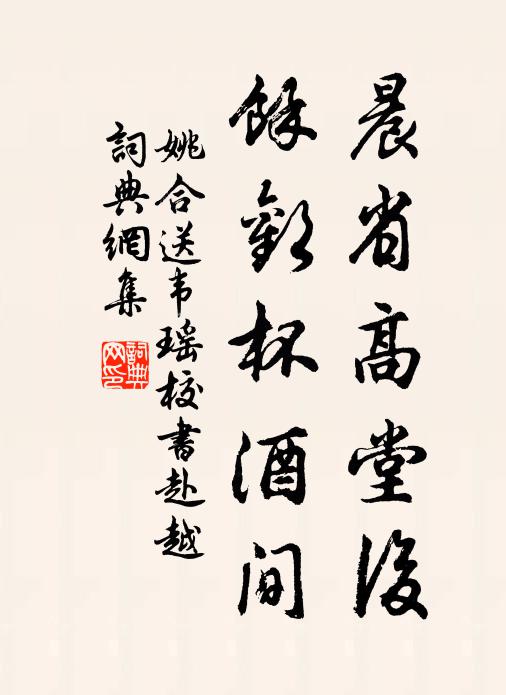 晨省高堂後
餘歡杯酒間
姚合送韦瑶校書赴越
詞典網集
詞典
网印